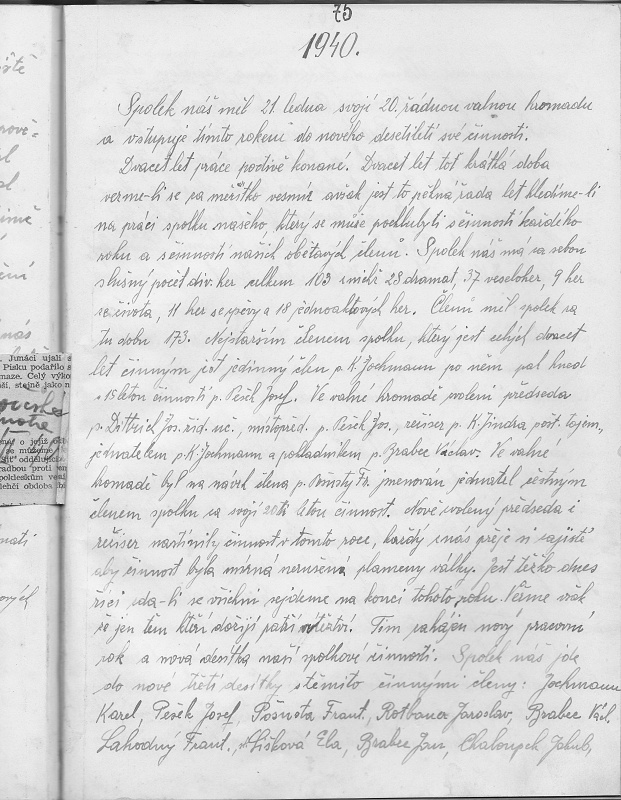 75
1940.
Spolek náš měl 21 ledna svojí 20. řádnou valnou hromadu
a vstupuje tímto rokem do nového desetiletí své činnosti.
Dvacet let práce poctivě konané. Dvacet let toť krátká doba
vezme-li se za měřítko vesmír avšak jest to pěkná řada let hledíme-li
na práci spolku našeho, který se může pochlubyti s činností každého
roku a s činností našich obětavých členů. Spolek náš má za sebou
slušný počet div. her celkem 103 z nichž 28 dramat, 37 veseloher, 9 her
ze života, 11 her se zpěvy a 18 jednoaktových her. Členů měl spolek za
tu dobu 173. Nejstarším členem spolku, který jest celých dvacet
let činným jest jedinný člen p. K. Jochmann, po něm pak hned
s 15 letou činností p. Pešek Josef. Ve valné hromadě zvoleni předseda
p. Dittrich Jos. říd. uč., místopřed. p. Pešek Jos., režiser p. K. Jindra pošt. tajem.,
jednatelem p. K. Jochmann a pokladníkem p. Brabec Václav. Ve valné
hromadě byl na návrh člena p. Pošusty Fr. jmenovan jednatel čestným
členem spolku za svojí 20ti letou činnost. Nově zvolený předseda i
režiser nastínily činnost v tomto roce, každý z nás přeje si zajisté
aby činnost byla mírná nerušená plameny války. Jest těžko dnes
říci zda-li se všichni sejdeme na konci tohoto roku. Věřme však
že jen těm kteří dožijí patří vítězství. Tím zahájen nový pracovní
rok a nová desítka naší spolkové činnosti. Spolek náš jde
do nové třetí desítky s těmito činnými členy: Jochmann
Karel, Pešek Josef, Pošusta Frant., Rotbauer Jaroslav, Brabec Václ.
Lahodný Frant., Lišková Ela, Brabec Jan, Chaloupek Jakub,
. Junáci ujali s
Písku podařilo s
maze. Celý výko
ší, stejně jako n